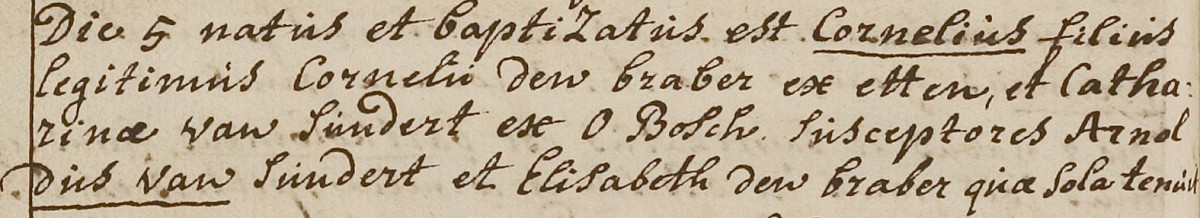 Die 5 natus et baptizatus est Cornelius filius
legitimus Cornelii den braber ex etten, et Catha:
rinæ van Sundert ex O Bosch. Susceptores Arnol
dus van Sundert et Elisabeth den braber quæ sola tenuit